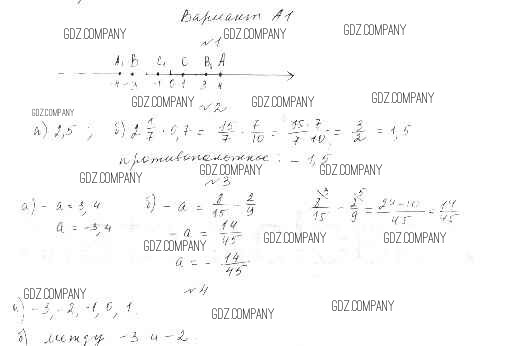 Вариант А1
GDZ.COMPANY GDZ.COMPANY GDZ.COMPANY
№1
A₁ B C₁ C B₁ A
-4 -3 -1 0 1 3 4
GDZ.COMPANY GDZ.COMPANY GDZ.COMPANY
№2
GDZ.COMPANY
а) 2,5; б) 2 1/7 · 0,7 = 15/7 · 7/10 = 15·7/7·10 = 3/2 = 1,5
противоположное: -1,5
GDZ.COMPANY GDZ.COMPANY GDZ.COMPANY
№3
а) -a = 3,4 б) -a = 8/15 - 2/9 8/15 - 2/9 = 24-10/45 = 14/45
a = -3,4 -a = 14/45
GDZ.COMPANY GDZ.COMPANY GDZ.COMPANY
a = -14/45
GDZ.COMPANY
№4
а) -3, -2, -1, 0, 1.
GDZ.COMPANY GDZ.COMPANY
б) между -3 и -2.